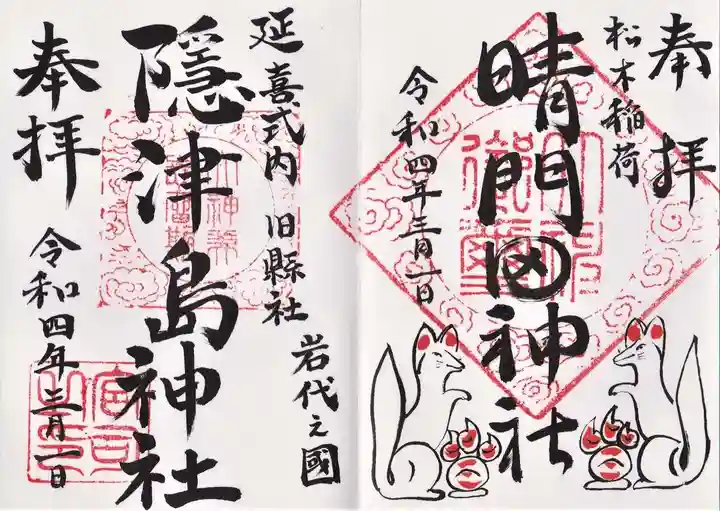 奉拝
松木稲荷
晴門田神社
令和四年三月一日
延喜式内 旧縣社
岩代之國
隠津島神社
奉拝
令和四年三月一日